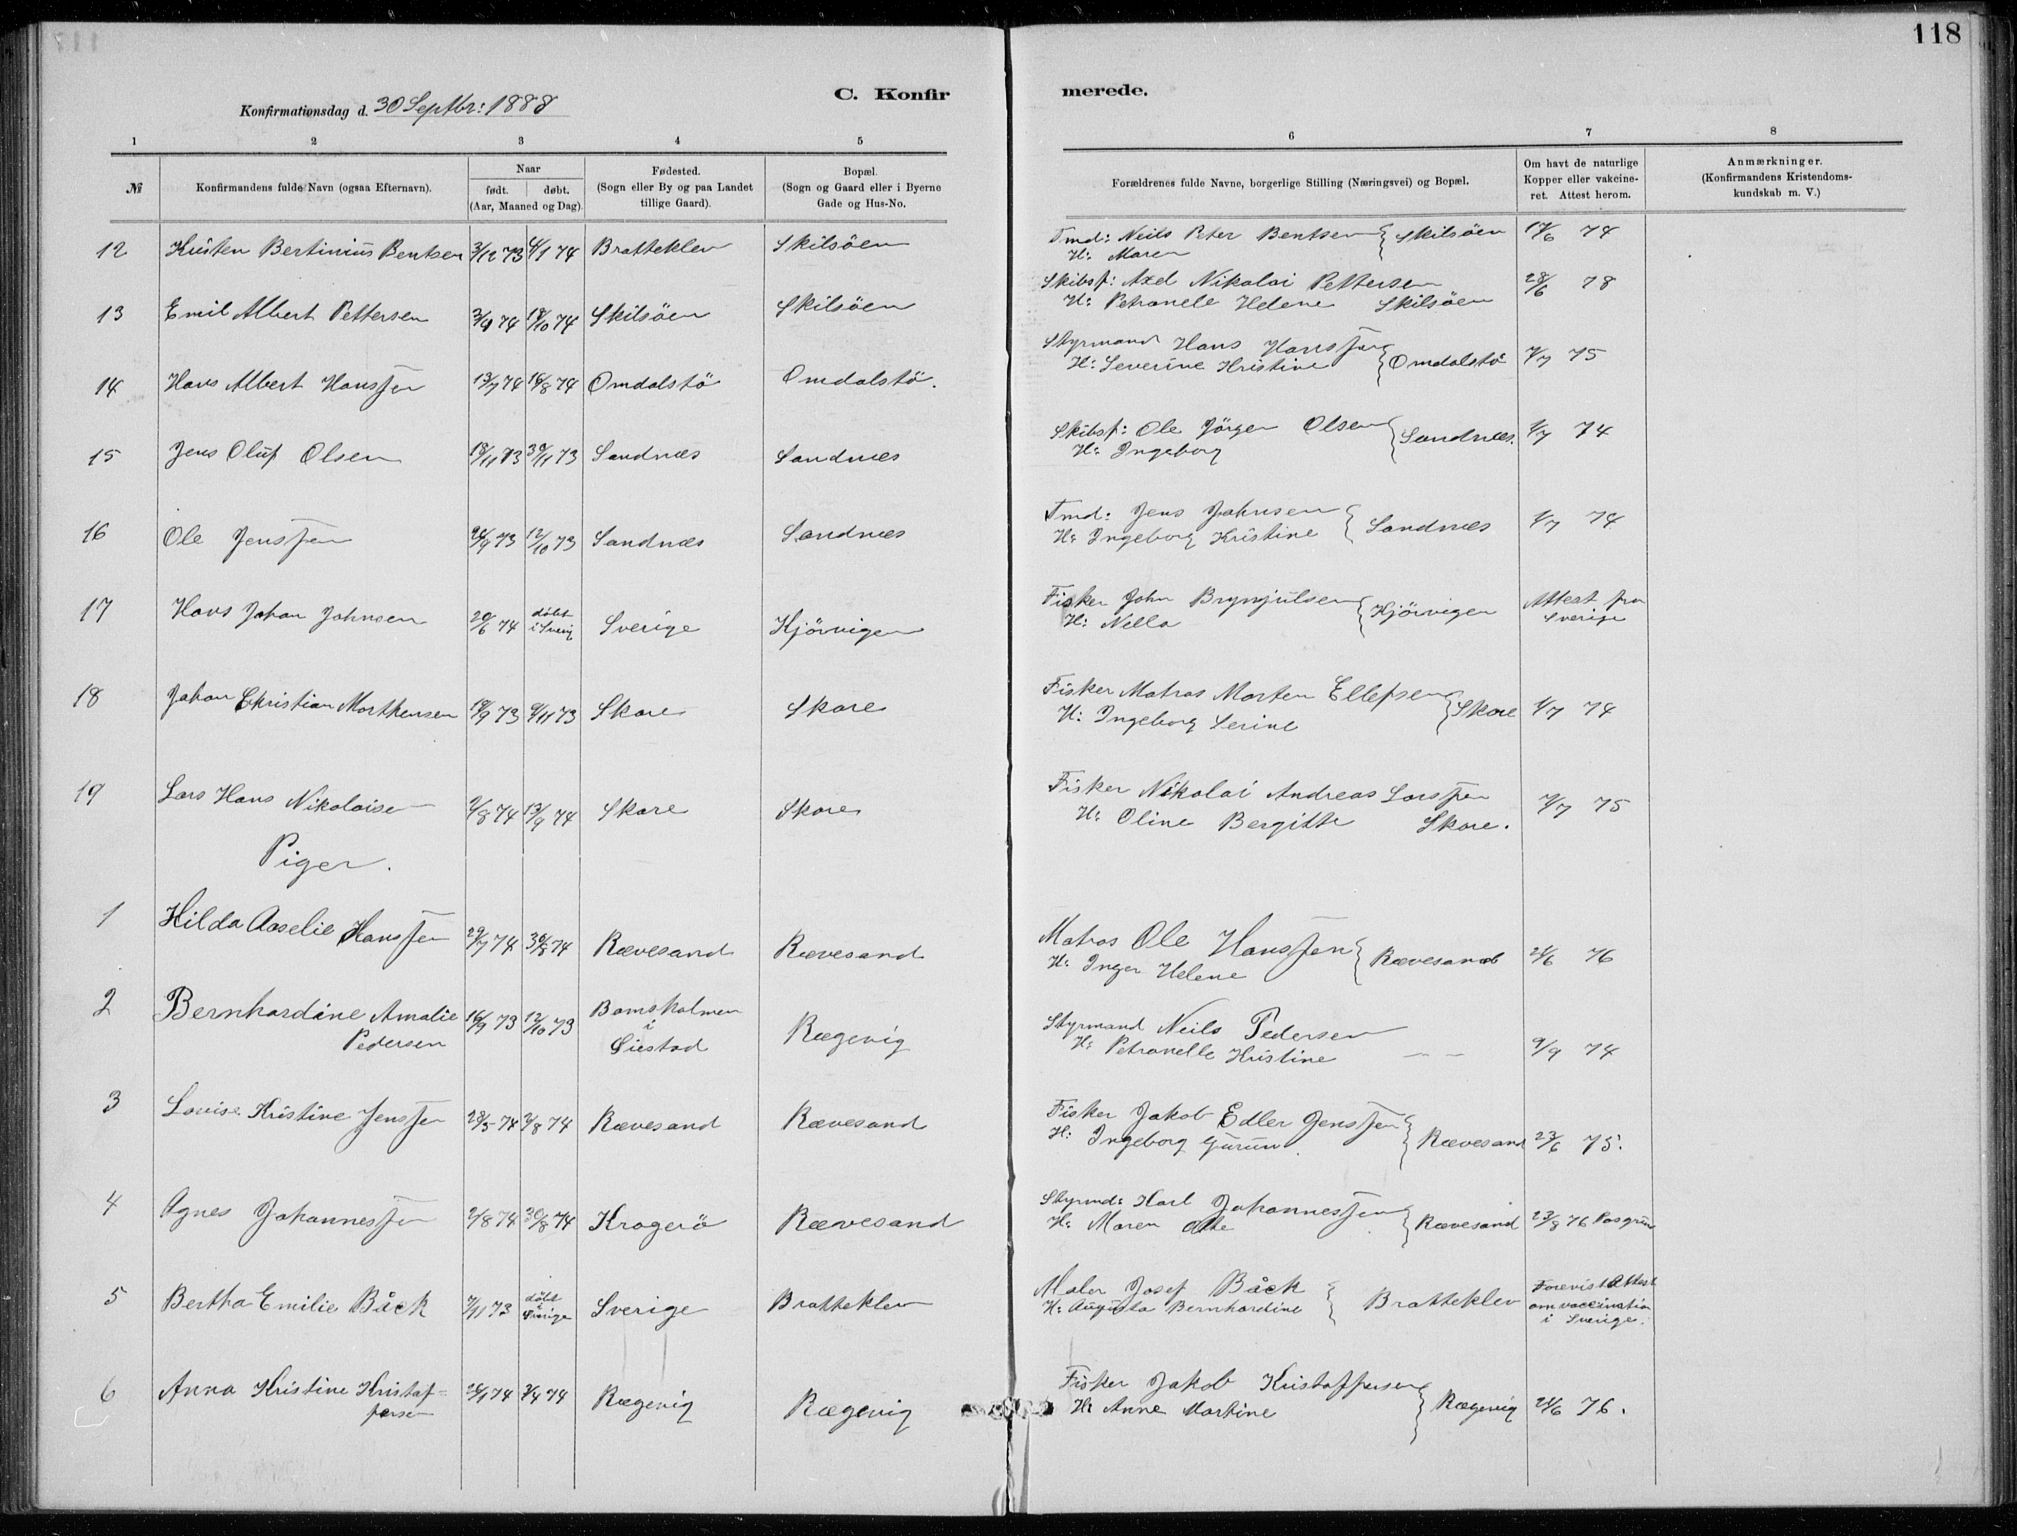 118
C. Konfirmerede.
Konfirmationsdag d. 30 Septbr: 1888
1 2 3 4 5 6 7 8
№ Konfirmandens fulde Navn (ogsaa Efternavn). Naar født. døbt. (Aar, Maaned og Dag). Fødested. (Sogn eller By og paa Landet tillige Gaard). Bopæl. (Sogn og Gaard eller i Byerne Gade og Hus-No. Forældrenes fulde Navne, borgerlige Stilling (Næringsvei) og Bopæl. Om havt de naturlige Kopper eller vakcineret. Attest herom. Anmærkninger. (Konfirmandens Kristendomskundskab m. V.)
12 Kristen Bertinius Bentsen 3/12 73 4/1 74 Bratteklev Skilsöen Tmd: Neils Peter Bentsen Skilsöen 74
H: Maren
13 Emil Albert Pettersen 3/9 74 18/10 74 Skilsöen Skilsöen Skibsf: Axel Nikolai Pettersen 28/6 78
H: Petronele Helene Skilsöen
14 Hans Albert Hanssen 13/7 74 16/8 74 Omdalstö Omdalstö. Styrmand Hans Hanssen Omdalstö 75
H: Severine Kristine
15 Jens Oluf Olsen 73 30/11 73 Sandnæs Sandnæs Skibsf: Ole Jörgen Olsen Sandnæs. 1/7 74
H: Ingeborg
16 Ole Jenssen 73 12/10 73 Sandnæs Sandnæs Tmd: Jens Johnsen Sandnæs 1/7 74
H: Ingeborg Kristine
17 Hans Johan Johnsen 20/6 74 döbt i Sverig Sverige Hjörvigen Fisker John Brynjulsen Hjörvigen Attest fra Sverige
H: Nella
18 Johan Christian Morthensen 73 73 Skare Skare Fisker Matros Morten Ellefsen Skare 1/7 74
H: Ingeborg Serine
19 Lars Hans Nikolaisen 74 13/9 74 Skare Skare Fisker Nikolai Andreas Larssen 75
H: Oline Bergitte Skare.
Piger.
1 Hilda Aaselie Hanssen 29/7 74 30/8 74 Rævesand Rævesand Matros Ole Hanssen Rævesand 24/6 76
H: Inger Helene
2 Bernhardine Amalie Pedersen 16/9 73 12/10 73 Bomsholmen i Öiestad Rægevig Styrmand Neils Pedersen 9/9 74
H: Petronelle Kristine — —
3 Lovise Kristine Jenssen 28/5 74 2/8 74 Rævesand Rævesand Fisker Jakob Edler Jenssen Rævesand 23/6 75.
H: Ingeborg Gurun
4 Agnes Johannessen 2/8 74 30/8 74 Kragerö Rævesand Styrmd: Karl Johannessen Rævesand 23/8 76 Posgrun
H: Maren
5 Bertha Emilie Båck 7/11 73 döbt i Sverige Sverige Bratteklev Maler Josef Båck Bratteklev Forevist Attest om vaccination i Sverige.
H: Augusta Bernhardine
6 Anna Kristine Kristoffersen 74 74 Rægevig Rægevig Fisker Jakob Kristoffersen Rægevig 24/6 76.
H: Anne Martine